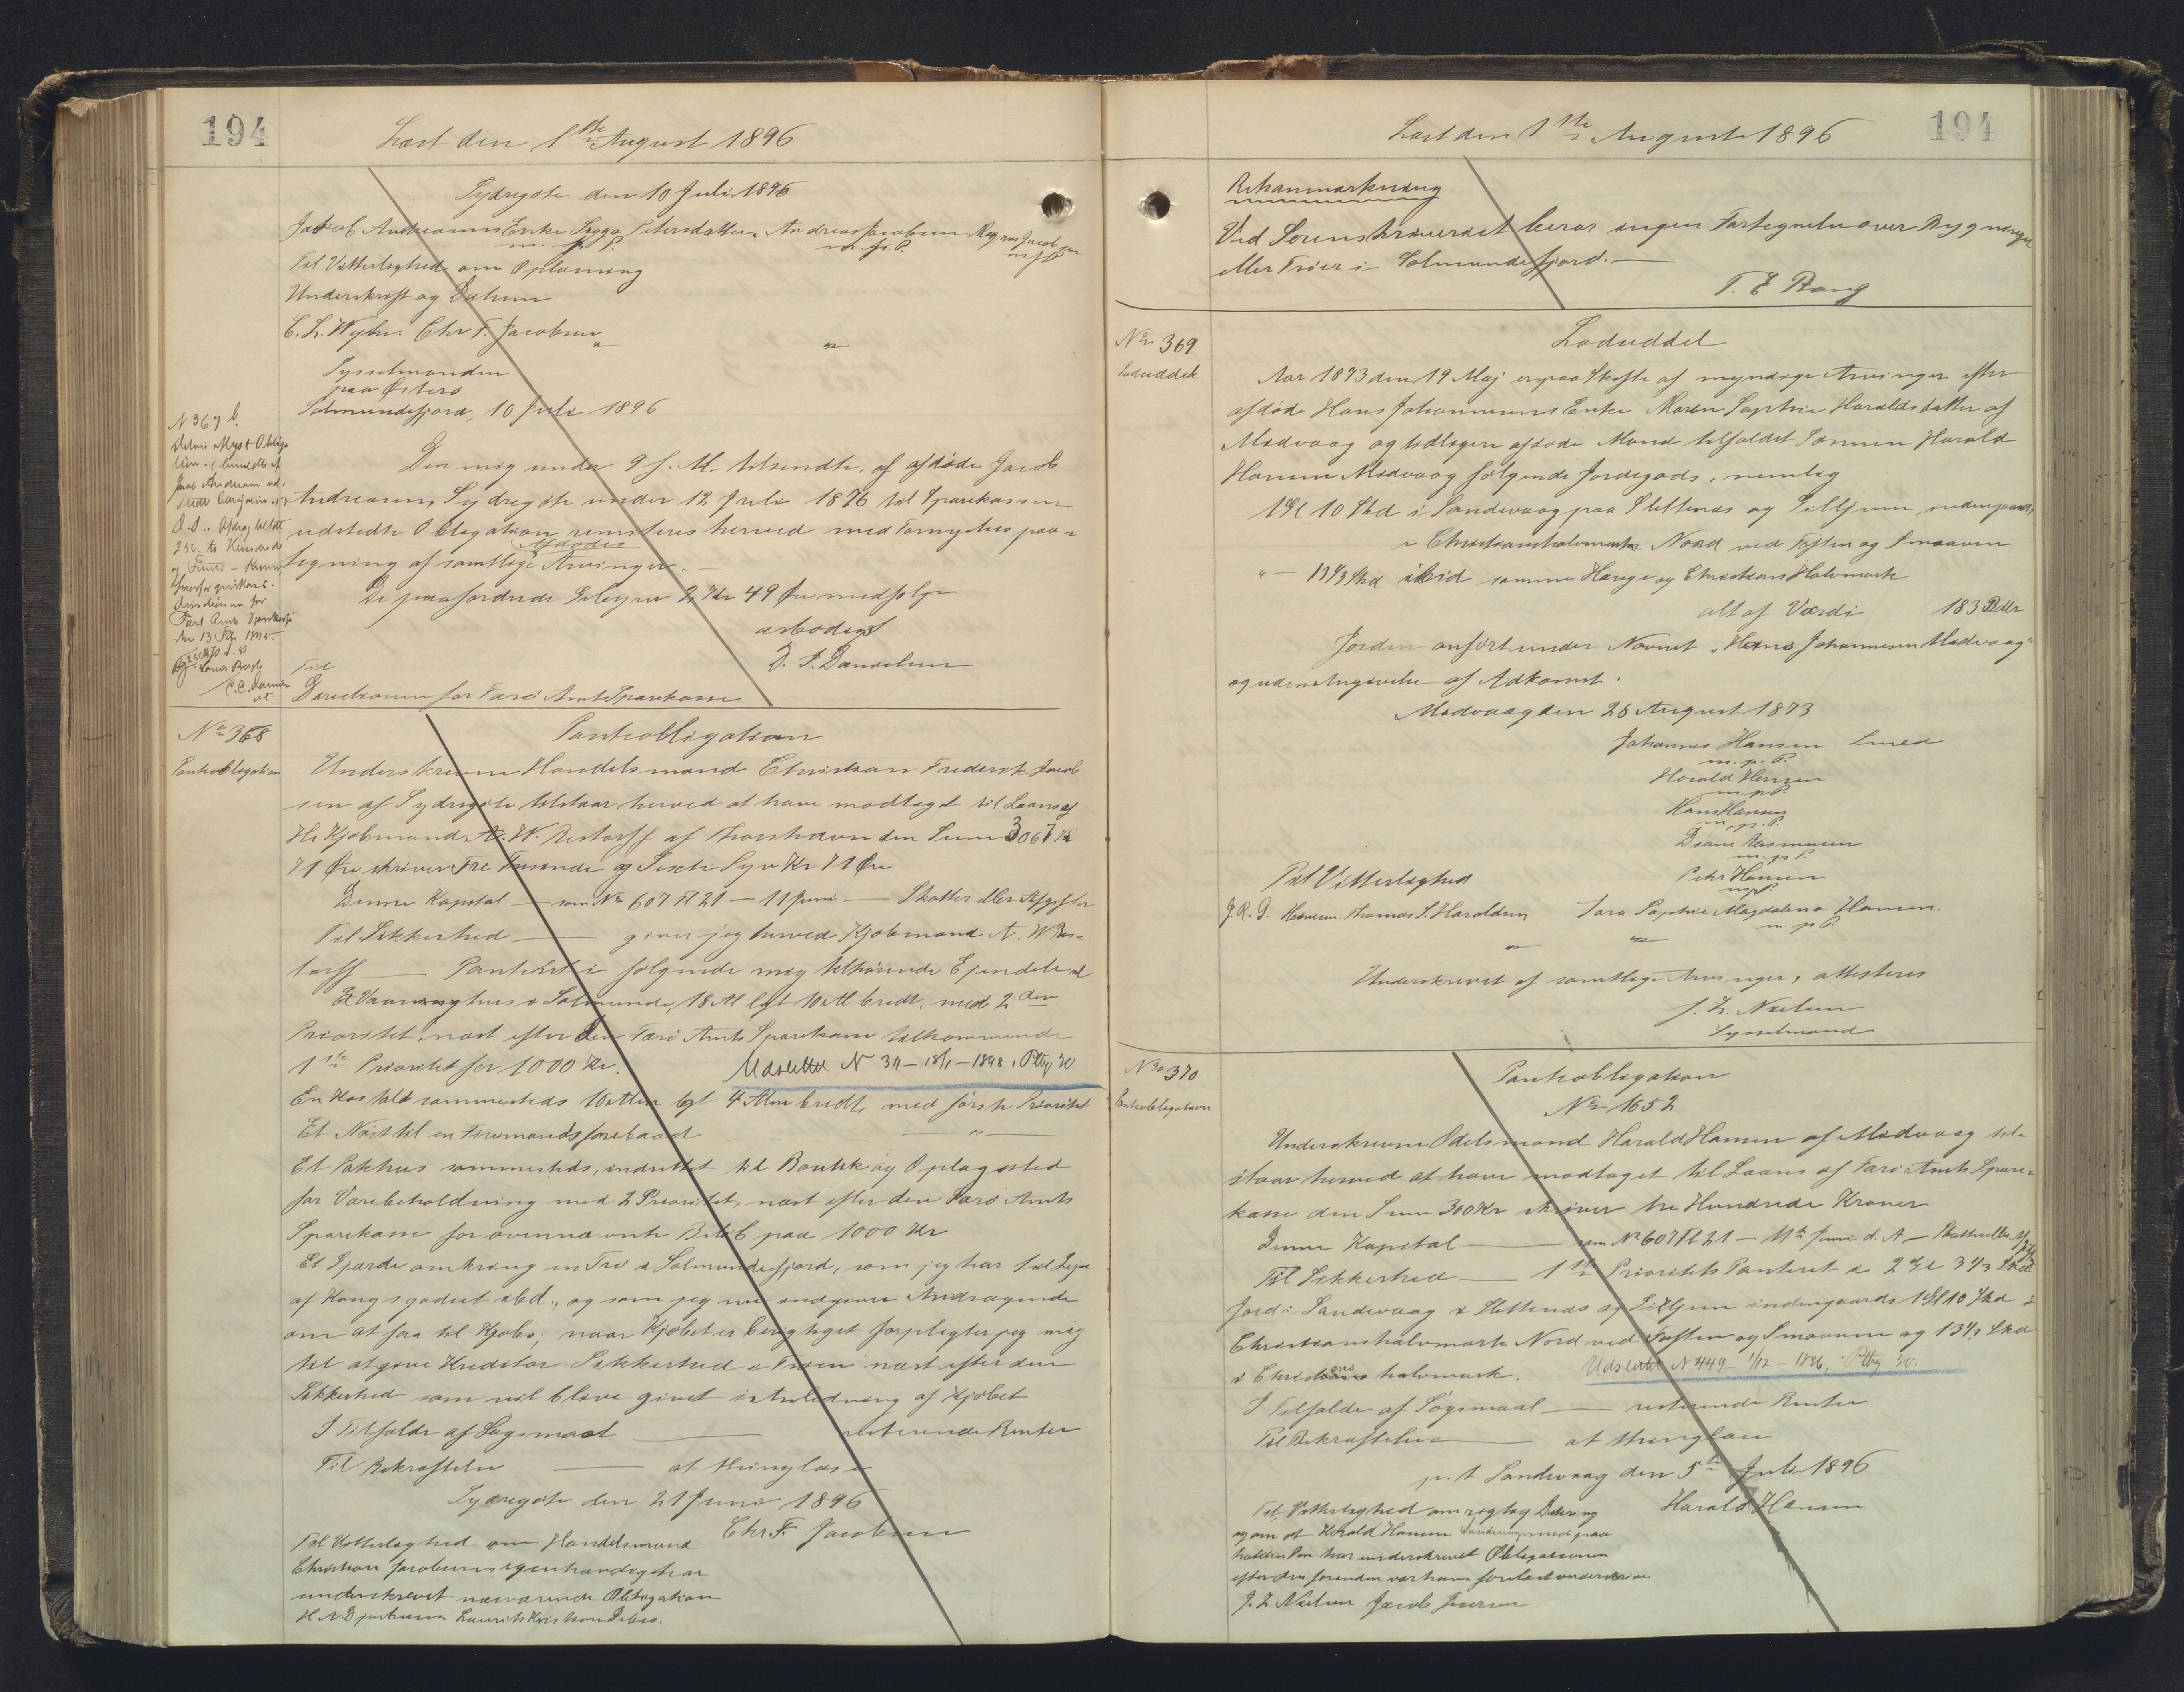 194
Læst den 1ste August 1896
Sydregøte den 10 Juli 1896
Jakob Andreasens Enke Sigga Petersdatter, Andreas Jacobsen Magnus Jacobsen
m. p. P. m. p. P. m p P
Til Vitterlighed om Oplæsning
Underskrift og Datum
Chr F. Jacobsen
Sysselmanden
paa Østerø
Solmundefjord, 10 Juli 1896
N 367 b.
Den mig under 9 f. M. tilsendte, af afdøde Jacob
Andreasen, Sydregøte under 12 Juli 1876 til Sparekassen
udstedte Obligation remitteres herved med Fornyelses paa-
tegning af samtlige Afdødes Arvinger.
De paafordrede Gebyrer 2 Kr 49 Øre medfølger
ærbødigst
D. P. Danielsen
Til
Directionen for Færø Amts Sparekasse
No 368
Pantobligation
Pantobligation
Underskrevne Handelsmand Christian Frederik Jacob
sen af Sydregøte tilstaar herved at have modtaget til Laans af
Hr Kjøbmand A. W. Restorff af Thorshavn den Sum 3067 Kr
71 Øre skriver Tre Tusinde og Sexti Syv Kr 71 Øre
Denne Kapital — som No 607 Fl 21 — 11 Juni — Skatter eller Afgifter
Til Sikkerhed — giver jeg herved Kjøbmand A. W. Res-
torff — Panteret i følgende mig tilhørende Ejendele
Et Vaaningshus i Solmunde, 18 Al lgt 10 Al bredt, med 2den
Prioritet, næst efter den Færø Amts Sparekasse tilkommende
1ste Prioritet for 1000 Kr.
Udslettet N 311 — 18/1 — 1898, Ptbg 30
En Kostald sammesteds 10 Alen lgt 4 Alen bredt, med første Prioritet
Et Nøst til en Firemandsfarebaad — " —
Et Pakhus sammesteds, indrettet til Boutik og Oplagssted
for Varebeholdning med 2 Prioritet, næst efter den Færø Amts
Sparekasse for ovennævnte Beløb paa 1000 Kr
Et Gjærde omkring en Trø i Solmundefjord, som jeg har til Leje
af Kongsgodset ibd., og som jeg nu indgiver Andragende
om at faa til Kjøbs; naar Kjøbet er berigtiget forpligter jeg mig
til at give Kreditor Sikkerhed i Trøen næst efter den
Sikkerhed som vil blive givet i Anledning af Kjøbet
I Tilfælde af Søgsmaal — resterende Renter
Til Bekræftelse — at thinglæse
Sydregøte den 21 Juni 1896
Chr. F. Jacobsen
Til Vitterlighed om Handelsmand
Christian Jacobsens egenhændig har
underskrevet nærværende Obligation
194
Læst den 1ste August 1896
Retsanmærkning
Ved Sorenskriveriet beror ingen Fortegnelse over Bygninger
eller Trøer i Solmundefjord. —
T. E Bang
No 369
Lodseddel
Lodseddel
Aar 1873 den 19 Maj er paa Skifte af myndige Arvinger efter
afdøde Hans Johannesens Enke Maren Sophie Haraldsdatter af
Midvaag og tidligere afdøde Mand tilfaldet Sønnen Harald
Hansen Midvaag følgende Jordegods, nemlig
1 Gl 10 Skd i Sandevaag paa Slettenæs og Lilljum, indengaards,
i Christianshalvmark Nord ved Toften og Smaaven
" — 13 1/3 Skd ibid samme Hauge og Christians Halvmark
alt af Værdi 183 Rdlr
Jorden anført under Navnet "Hans Johannesen Midvaag"
og uden Angivelse af Adkomst.
Midvaag den 26 August 1873
Johannes Hansen Smed
m. p. P.
Harald Hansen
m. p P.
Hans Hansen
m. p. P.
Rasmussen
m. p P.
Peter Hansen
m p P.
Til Vitterlighed
Thomas S. Haraldsen
Sara Sophie Magdalena Hansen.
m. p P.
Underskrevet af samtlige Arvinger, attesteres
J. Z. Nielsen
Sysselmand
No 370
Pantobligation
Pantobligation
No 1652
Underskrevne Odelsmand Harald Hansen af Midvaag til-
staar herved at have modtaget til Laans af Færø Amts Spare-
kasse den Sum 300 Kr skriver tre Hundrede Kroner
Denne Kapital — som No 607 Fl 21 — 11te Juni d. A — Skatter eller Afgifter
Til Sikkerhed — 1ste Prioritets Panteret i 2 Gl 3 1/3 Skd
Jord i Sandevaag i Slettenæs og Lilljum indengaards 1 Gl 10 Skd i
Christianshalvmark Nord ved Toften og Smaaven og 13 1/3 Skd
i Christians halvmark.
Udslettet N 449 — 1/12 — 1896, Ptbg 30.
I Tilfælde af Søgsmaal — resterende Renter
Til Bekræftelse — at thinglæse
p. t Sandevaag den 5te Juli 1896
Harald Hansen
Til Vitterlighed om rigtig Datering
og om at Harald Hansen Sandevaag med paa
holden Pen har underskrevet Obligationen
J. Z Nielsen Jacob